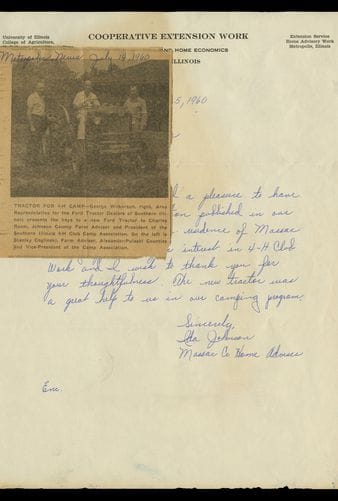 COOPERATIVE EXTENSION WORK
University of Illinois
College of Agriculture,
AND HOME ECONOMICS
ILLINOIS
Extension Service
Home Advisory Work
Metropolis, Illinois
News, July 19, 1960
5, 1960
TRACTOR FOR 4-H CAMP—George Wilkerson, right, Area
Representative for the Ford Tractor Dealers of Southern Illi-
nois presents the keys to a new Ford Tractor to Charley
Johnson County Farm Adviser and President of the
Southern Illinois 4-H Club Camp Association. On the left is
Stanley Coplinski, Farm Adviser, Alexander-Pulaski Counties
and Vice-President of the Camp Association.
a pleasure to have
published in our
evidence of Massac
interest in 4-H Club
Work and I wish to thank you for
your thoughtfulness. The new tractor was
a great help to us in our camping program.
Sincerely,
Ida Johnson
Massac Co Home Adviser
Enc.